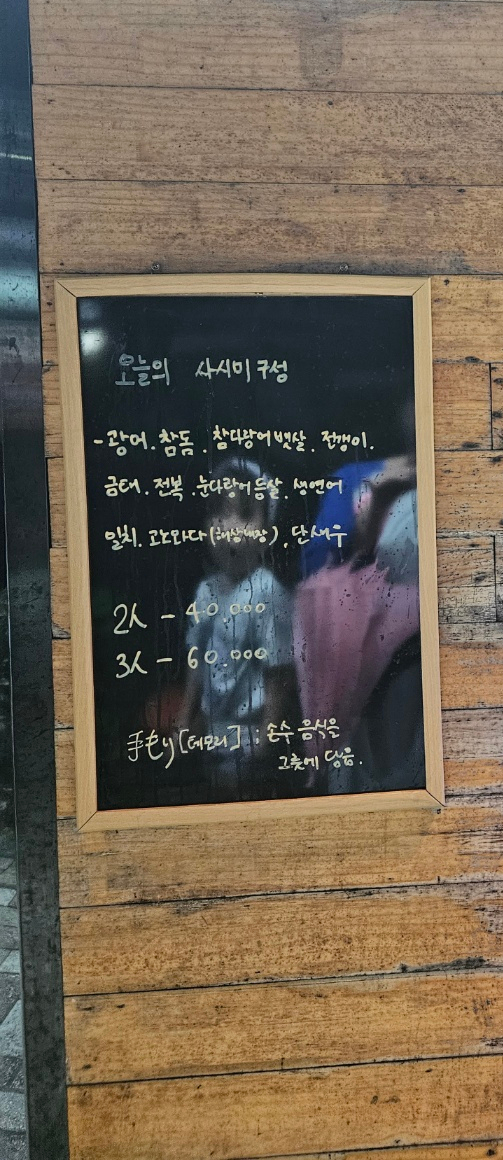 오늘의 사시미 구성
-광어. 참돔. 참다랑어 뱃살. 전갱이.
금태. 전복. 눈다랑어 등살. 생연어
코노와다(해삼내장). 단새우
2人 - 40.000
3人 - 60.000
手もり [테모리] : 손수 음식을
그릇에 담음.